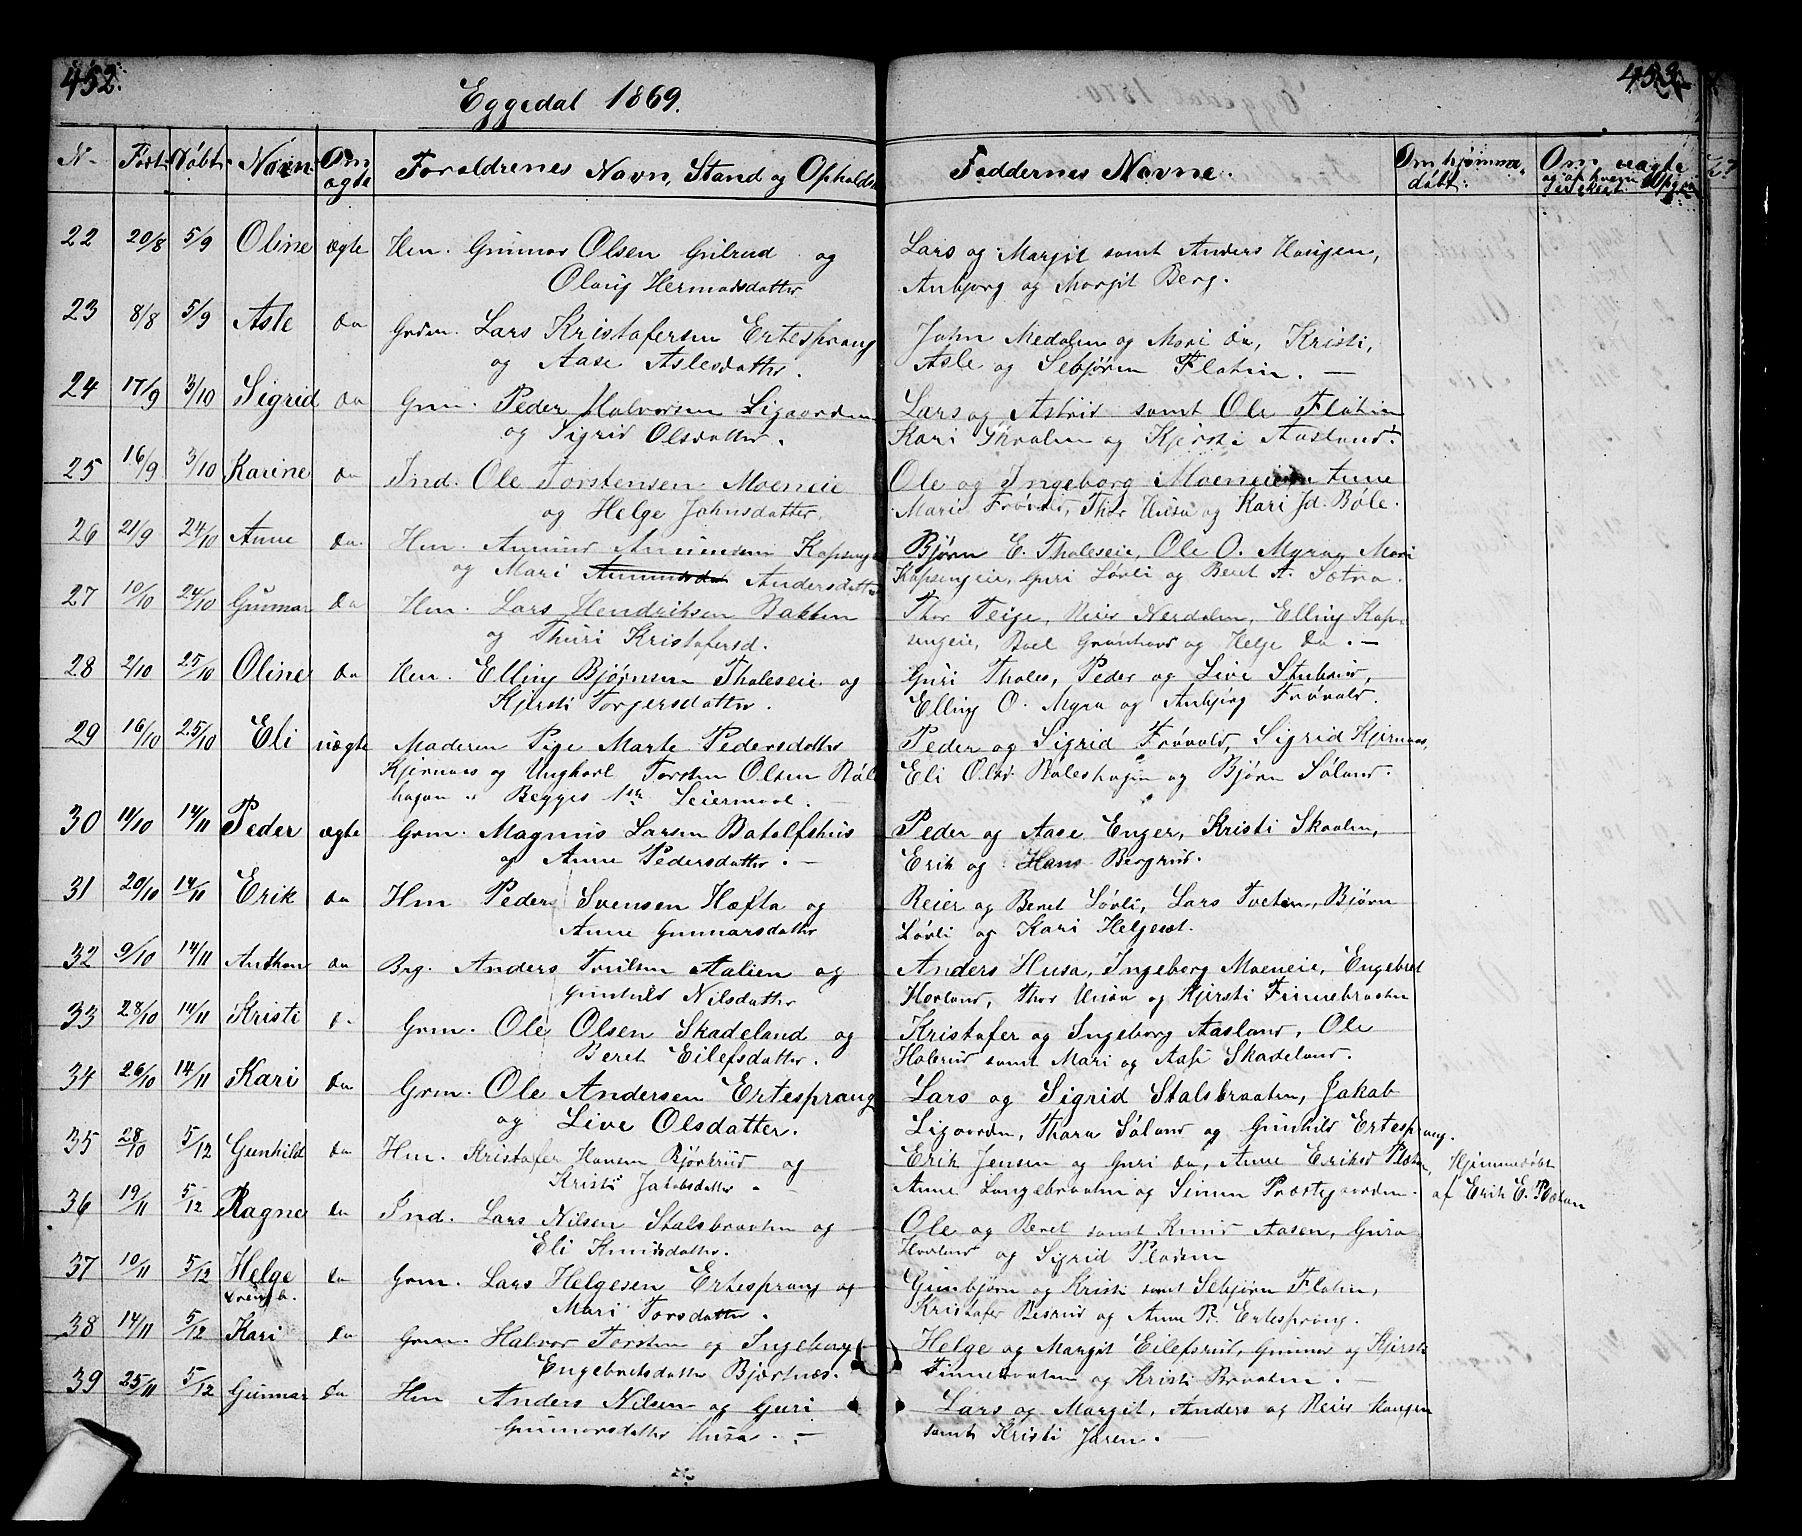 452.
Eggedal 1869.
N. Født. Døbt. Navn. Om ægte Foraldrenes Navn, Stand og Ophold
22 20/8 5/9 Oline ægte Hm. Gunnar Olsen Grilrud og
Olaug Hermandsdatter
23 8/8 5/9 Asle do Grdm. Lars Kristofersen Ertesprang
og Aase Aslesdatter.
24 17/9 3/10 Sigrid do Grm. Peder Halvorsen Ligaarden
og Sigrid Olsdatter.
25 16/9 3/10 Karine do Ind. Ole Torstensen Moeneie
og Helge Johnsdatter.
26 21/9 24/10 Anne do. Hm. Amund Amundsen Kopseng
og Mari Andersdatter
27 10/10 24/10 Gunnar do Hm. Lars Hendriksen Bakken
og Thuri Kristofersd.
28 2/10 25/10 Oline do Hm. Elling Bjørnsen Tholeseie og
Kjersti Torgersdatter.
29 16/10 25/10 Eli uægte Moderen Pige Marte Pedersdatter
Kjørnaas og Ungkarl Torsten Olsen Bøle
hagan Begges 1ste Leiermaal. —
30 14/10 14/11 Peder ægte Grm. Magnus Larsen Batalfshus
og Anne Pedersdatter. —
31 20/10 14/11 Erik do Hm Peder Svensen Hæfta og
Anne Gunnarsdatter
32 9/10 14/11 Anthon do Brg. Anders Truilsen Aalien og
Gunhild Nilsdatter
33 28/10 14/11 Kristi do Grm. Ole Olsen Skadeland og
Beret Eilefsdatter.
34 26/10 14/11 Kari do Grm. Ole Andersen Ertesprang
og Live Olsdatter.
35 28/10 5/12 Gunhild do Hm. Kristofer Hansen Bjørkrud og
Kristi Jakobsdatter. -
36 19/11 5/12 Ragne do Ind. Lars Nilsen Stalsbraaten og
Eli Knudsdatter.
37 10/11 5/12 Helge do Grm. Lars Helgesen Ertesprang og
Mari Torsdatter.
38 14/11 5/12 Kari do Grm. Halvor Torsten og Ingeborg
Engebretsdatter Bjærtnes.
39 25/11 5/12 Gunnar do Hm Anders Nilsen og Guri
Gunnarsdatter Husa. —
453.
Faddernes Navne. Om hjemmedøbt. Om uægte
Lars og Margit samt Anders Haugen,
Anbjørg og Margit Berg.
John Medalen og Mari do, Kristi,
Asle og Sebjørn Flatin. —
Lars og Astrid samt Ole Flatin
Kari Skaalen og Kjersti Aasland.
Ole og Ingeborg Moeneie Anne
Marie Frøvold, Thor Husa og Kari Jd. Bøle.
Bjørn E. Tholeseie, Ole O. Myra, Mari
Kopsengeie, Guri Løvli og Beret A. Sætra.
Thor Teige, Reier Nerdalen, Elling Kop-
sengeie, Boel Grønhovd og Helge do. —
Guri Tholes, Peder og Live Stubrud,
Elling O. Myra og Anbjørg Frøvold.
Peder og Sigrid Frøvold, Sigrid Kjørnaas,
Eli Olsd Bøleshagen og Bjørn Søland.
Peder og Aase Enger, Kristi Skaalen,
Erik og Hans Bergrud.
Reier og Beret Løvli, Lars Tveten, Bjørn
Løvli og Kari Helgeset.
Anders Husa, Ingeborg Moeneie, Engebret
Hovland, Thor Husa og Kjersti Finnebraaten
Kristofer og Ingeborg Aasland, Ole
Holerud samt Mari og Aase Skadeland.
Lars og Sigrid Stalsbraaten, Jakob
Ligaarden, Thara Søland og Gunhild Ertesprang.
Erik Jensen og Guri do, Anne Eriksd Plætan, Hjemmedøbt
Anne Langebraaten og Simen Præstegaarden. af Erik E. Plætan
Ole og Beret samt Knud Aasen, Guro
Hovland og Sigrid Pladsen
Gunbjørn og Kristi samt Sebjørn Flatin,
Kristofer Besrud og Anne P. Ertesprang.
Helge og Margit Eilefsrud, Gunnar og Kjersti
Finnebraaten og Kristi Braaten. —
Lars og Margit, Anders og Reier Haugen
samt Kristi Jaren. —